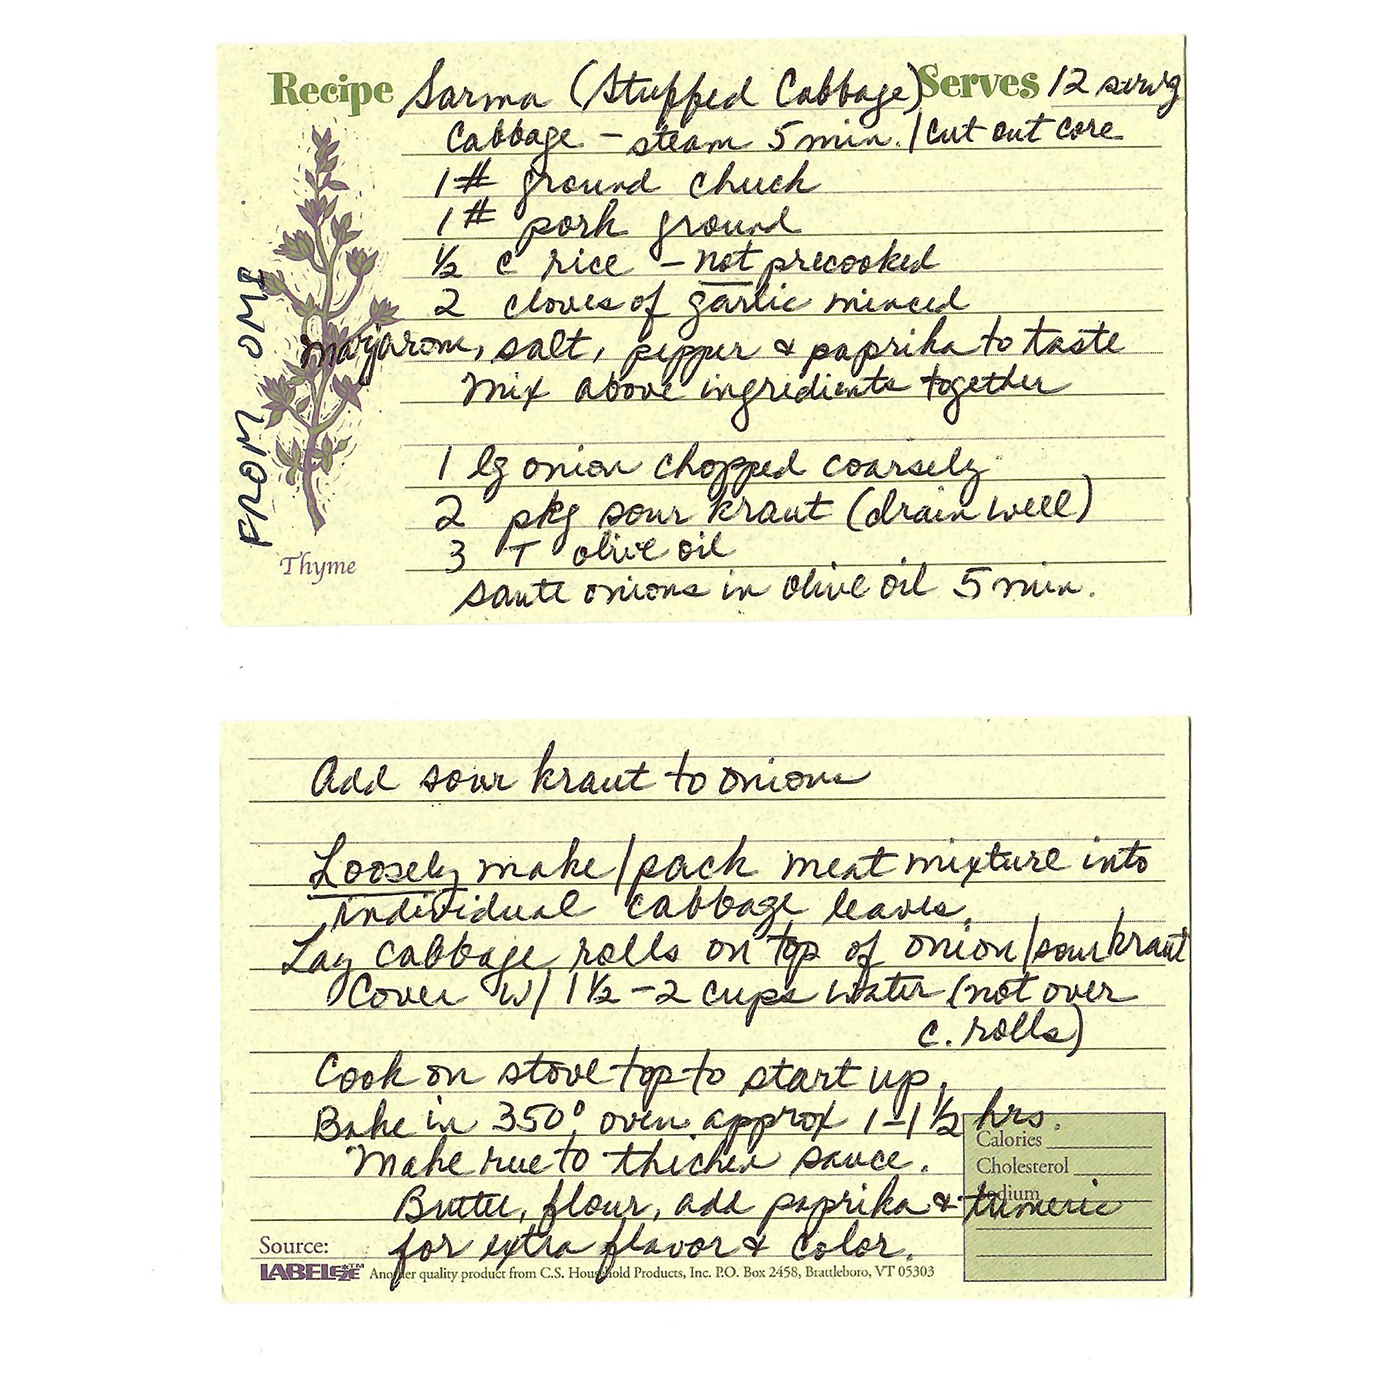 Recipe Sarma (Stuffed Cabbage) Serves 12 servg
Cabbage - steam 5 min. / Cut out core
1# ground chuck
1# pork ground
½ c rice - not precooked
2 cloves of garlic minced
marjarom, salt, pepper & paprika to taste
Mix above ingredients together
1 lg onion chopped coarsely
2 pkg sour kraut (drain well)
3 T olive oil
saute onions in olive oil 5 min.
FROM OMI
Thyme
Add sour kraut to onions
Loosely make/pack meat mixture into
individual cabbage leaves.
Lay cabbage rolls on top of onion/sour kraut
Cover w/ 1½ - 2 cups water (not over
c. rolls)
Cook on stove top to start up.
Bake in 350° oven approx 1-1½ hrs.
Make rue to thicken sauce.
Butter, flour, add paprika & tumeric
for extra flavor & color.
Calories
Cholesterol
Sodium
Source:
LABELEZE™ Another quality product from C.S. Household Products, Inc. P.O. Box 2458, Brattleboro, VT 05303